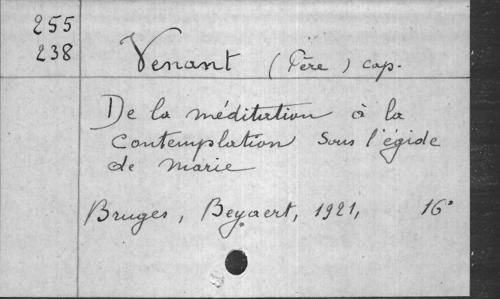 255
238
Venant (Père) cap.
De la méditation à la
Contemplation sous l'égide
de Marie
Bruges, Beyaert, 1921, 16°